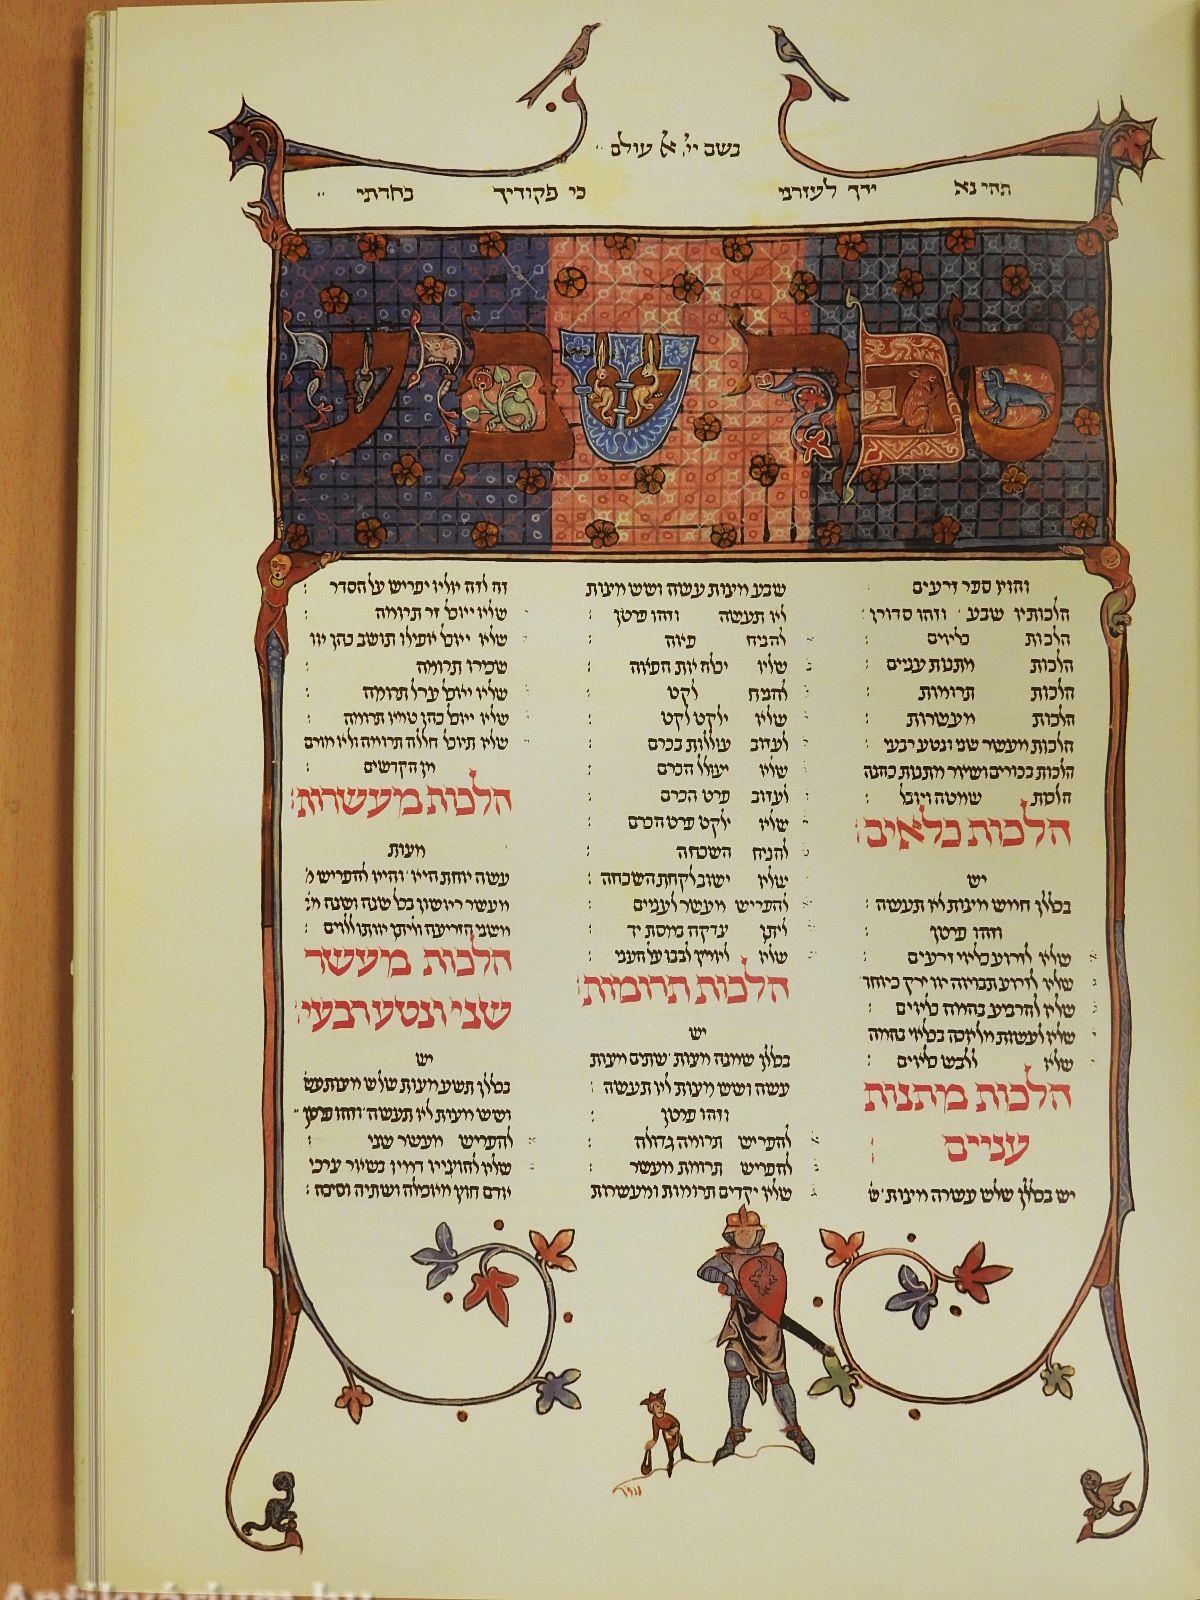 בשם יי׳ א׳ עולם
תהי נא ידך לעזרני כי פקודיך בחרתי
ספר שביעי
והוא ספר זרעים
הלכותיו שבע וזהו סדורן
הלכות כלאים
הלכות מתנות עניים
הלכות תרומות
הלכות מעשרות
הלכות מעשר שני ונטע רבעי
הלכות בכורים ושאר מתנות כהנה
הלכות שמטה ויובל
הלכות כלאים
יש
בכללן חמש מצות לא תעשה
וזהו פרטן
שלא לזרוע כלאי זרעים
שלא לזרוע תבואה או ירק
שלא להרביע בהמה כלאים
שלא לעשות מלאכה בכלאי בהמה
שלא ללבש כלאים
הלכות מתנות
עניים
יש בכללן שלש עשרה מצות ש
שבע מצות עשה ושש מצות
לא תעשה וזהו פרטן
להניח פאה
שלא יכלה את הפאה
להניח לקט
שלא ילקט לקט
לעזוב עוללות בכרם
שלא יעולל הכרם
לעזוב פרט הכרם
שלא ילקט פרט הכרם
להניח השכחה
שלא ישוב לקחת השכחה
להפריש מעשר לעניים
ליתן צדקה כמסת יד
שלא יאמץ לבבו על העני
הלכות תרומות
יש
בכללן שמנה מצות שתים מצות
עשה ושש מצות לא תעשה
וזהו פרטן
להפריש תרומה גדולה
להפריש תרומת מעשר
שלא יקדים תרומות ומעשרות
זה לזה אלא יפריש על הסדר
שלא יאכל זר תרומה
שלא יאכל אפילו תושב כהן או
שכירו תרומה
שלא יאכל ערל תרומה
שלא יאכל כהן טמא תרומה
שלא תאכל חללה תרומה ולא מורם
מן הקדשים
הלכות מעשרות
מצות
עשה אחת היא והיא להפריש מ
מעשר ראשון בכל שנה ושנה
משני הזריעה וליתן אותו ללוים
הלכות מעשר
שני ונטע רבעי
יש
בכללן תשע מצות שלש מצות עש
ושש מצות לא תעשה וזהו פרטן
להפריש מעשר שני
שלא להוציא דמיו בשאר צרכי
אדם חוץ מאכילה ושתיה וסיכה
Antikvárium.hu